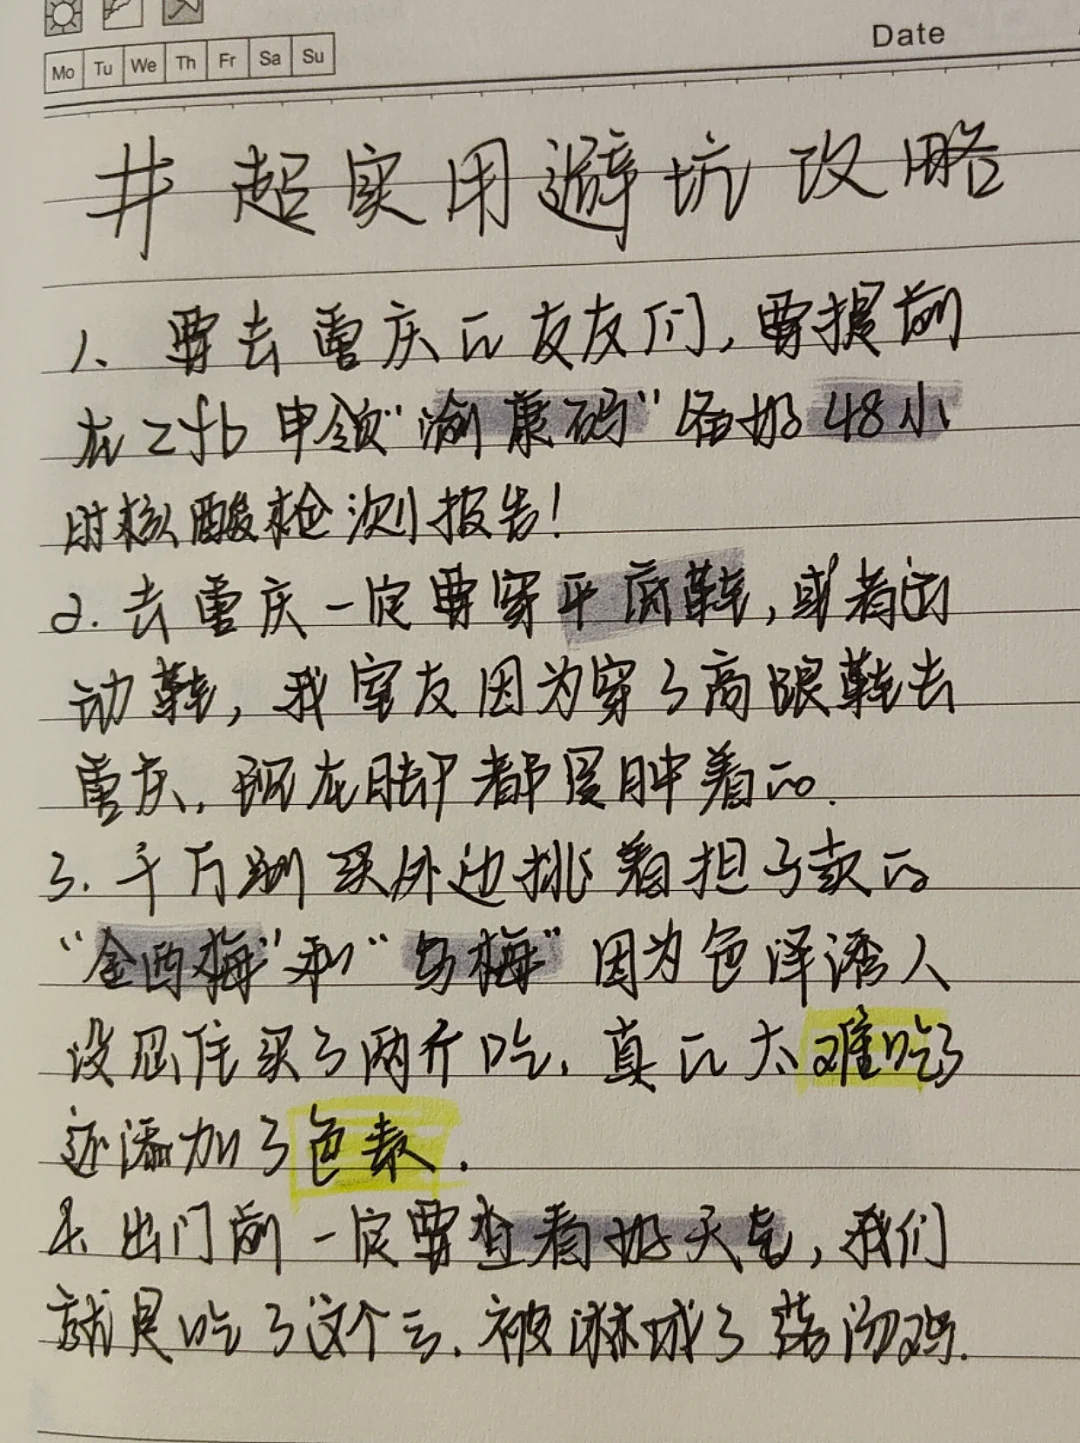 Mo Tu We Th Fr Sa Su
Date
# 超实用避坑攻略
1、要去重庆的友友们,要提前
在zfb申领“渝康码”备好48小
时核酸检测报告!
2.去重庆一定要穿平底鞋,或者运
动鞋,我室友因为穿了高跟鞋去
重庆,现在脚都是肿着的.
3.千万别买外边挑着担子卖的
“金西梅”和“乌梅”因为色泽诱人
没忍住买了两斤吃,真的太难吃了
还添加了色素.
4.出门前一定要查看好天气,我们
就是吃了这个亏.被淋成了落汤鸡.